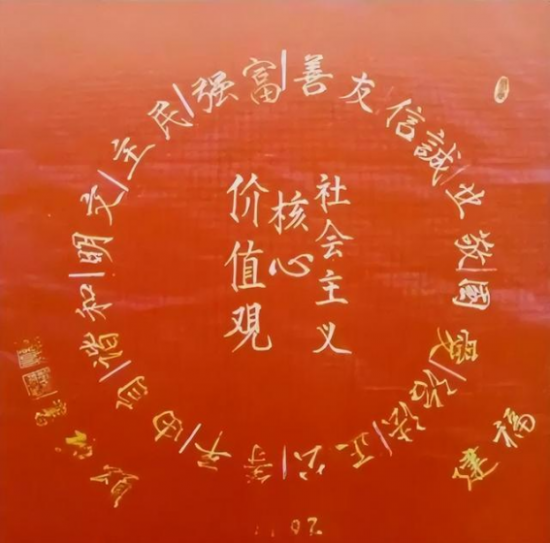 社会主义
核心
价值观
富强|民主|文明|和谐|自由|平等|公正|法治|爱國|敬业|誠信|友善|
福建